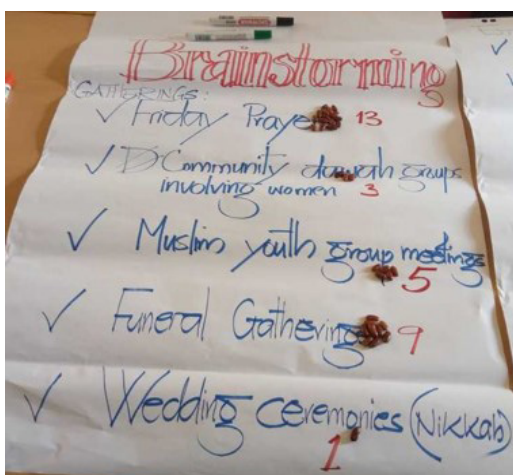 Brainstorming
S
GATHERINGS:
✓ Friday Prayer 13
✓ Community dawah groups
involving women 3
✓ Muslim youth group meetings
5
✓ Funeral Gathering 9
✓ Wedding ceremonies (Nikkah)
1